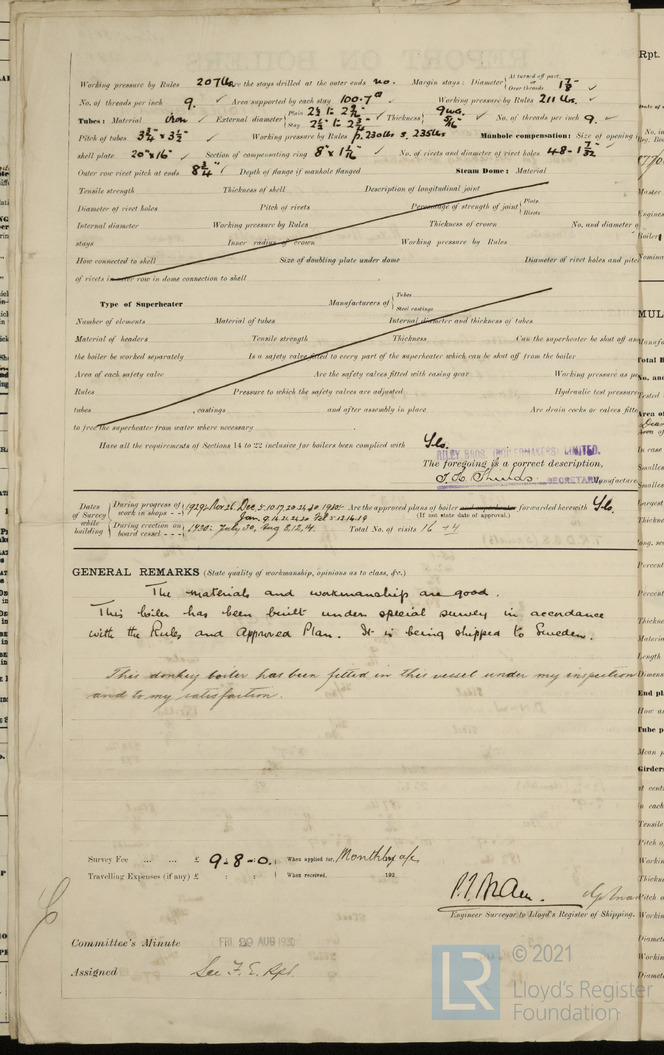 Working pressure by Rules 207 lbs Are the stays drilled at the outer ends no. Margin stays: Diameter { At turned off part, or Over threads 1 7/8
No. of threads per inch 9. Area supported by each stay 100.7 Working pressure by Rules 211 lbs.
Tubes: Material iron External diameter { Plain 2 1/2 Stay 2 1/2 Thickness { 9 WG. 5/16 No. of threads per inch 9.
Pitch of tubes 3 3/4" x 3 1/2" Working pressure by Rules p. 230 lbs s. 235 lbs Manhole compensation: Size of opening
shell plate 20" x 16" Section of compensating ring 8" x 1 1/16" No. of rivets and diameter of rivet holes 48 - 1 7/32
Outer row rivet pitch at ends 8 3/4" Depth of flange if manhole flanged Steam Dome: Material
Tensile strength Thickness of shell Description of longitudinal joint
Diameter of rivet holes Pitch of rivets Percentage of strength of joint { Plate Rivets
Internal diameter Working pressure by Rules Thickness of crown No. and diameter of
stays Inner radius of crown Working pressure by Rules
How connected to shell Size of doubling plate under dome Diameter of rivet holes and pitch
of rivets in outer row in dome connection to shell
Type of Superheater Manufacturers of { Tubes Steel castings
Number of elements Material of tubes Internal diameter and thickness of tubes
Material of headers Tensile strength Thickness Can the superheater be shut off and
the boiler be worked separately Is a safety valve fitted to every part of the superheater which can be shut off from the boiler
Area of each safety valve Are the safety valves fitted with easing gear Working pressure as per
Rules Pressure to which the safety valves are adjusted Hydraulic test pressure
tubes , castings and after assembly in place Are drain cocks or valves fitted
to free the superheater from water where necessary
Have all the requirements of Sections 14 to 22 inclusive for boilers been complied with Yes.
RILEY BROS. (BOILERMAKERS) LIMITED.
The foregoing is a correct description,
SECRETARY. Manufacturer
Dates of Survey while building { During progress of work in shops - - 1929: Nov 26. Dec. 5. 10. 17. 20. 24. 30. 1930: Jan. 9. 14. 21. 24. 30. Feb 5. 12. 14. 19 Are the approved plans of boiler and superheater forwarded herewith Yes.
(If not state date of approval.)
During erection on board vessel - - - 1930: July 30, Aug 8, 12, 14. Total No. of visits 16 + 4
GENERAL REMARKS (State quality of workmanship, opinions as to class, &c.)
The materials and workmanship are good.
This boiler has been built under special survey in accordance
with the Rules and Approved Plan. It is being shipped to Sweden.
This donkey boiler has been fitted in this vessel under my inspection
and to my satisfaction.
Survey Fee ... ... £ 9 - 8 - 0. When applied for, Monthly a/c
Travelling Expenses (if any) £ : : When received, 192
Engineer Surveyor to Lloyd's Register of Shipping.
Committee's Minute FRI. 29 AUG 1930
Assigned See F. E. Rpt.
© 2021
LR Lloyd's Register
Foundation
Rpt.